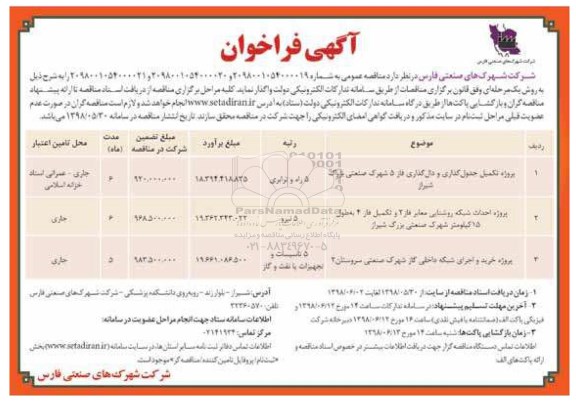 آگهی فراخوان
شرکت شهرک‌های صنعتی فارس
شرکت شهرک‌های صنعتی فارس در نظر دارد مناقصه عمومی به شماره ۲۰۹۸۰۰۱۰۵۴۰۰۰۰۱۹ و ۲۰۹۸۰۰۱۰۵۴۰۰۰۰۲۰ و ۲۰۹۸۰۰۱۰۵۴۰۰۰۰۲۱ را به شرح ذیل
به روش یک مرحله‌ای وفق قانون برگزاری مناقصات از طریق سامانه تدارکات الکترونیکی دولت واگذار نماید. کلیه مراحل برگزاری مناقصه از دریافت اسناد مناقصه تا ارائه پیشنهاد
مناقصه‌گران و بازگشایی پاکت‌ها از طریق درگاه سامانه تدارکات الکترونیکی دولت (ستاد) به آدرس www.setadiran.ir انجام خواهد شد و لازم است مناقصه‌گران در صورت عدم
عضویت قبلی مراحل ثبت‌نام در سایت مذکور و دریافت گواهی امضای الکترونیکی را جهت شرکت در مناقصه محقق سازند. تاریخ انتشار مناقصه در سامانه ۱۳۹۸/۰۵/۳۰ می‌باشد.
ردیف موضوع رتبه مبلغ برآورد مبلغ تضمین شرکت در مناقصه مدت (ماه) محل تامین اعتبار
۱ پروژه تکمیل جدول‌گذاری و دال‌گذاری فاز ۵ شهرک صنعتی بزرگ شیراز ۵ راه و ترابری ۱۸.۳۹۴.۴۱۸.۸۳۵ ۹۲۰.۰۰۰.۰۰۰ ۶ جاری - عمرانی اسناد خزانه اسلامی
۲ پروژه احداث شبکه روشنایی معابر فاز ۲ و تکمیل فاز ۴ به‌طول ۱۵ کیلومتر شهرک صنعتی بزرگ شیراز ۵ نیرو ۱۹.۳۶۲.۳۴۳.۰۲۲ ۹۶۸.۵۰۰.۰۰۰ ۶ جاری
۳ پروژه خرید و اجرای شبکه داخلی گاز شهرک صنعتی سروستان ۲ ۵ تاسیسات و تجهیزات یا نفت و گاز ۱۹.۶۶۱.۰۸۶.۵۰۰ ۹۸۳.۵۰۰.۰۰۰ ۵ جاری
ParsNamadData
۰۲۱-۸۸۳۴۹۶۷۰-۵
۱- زمان دریافت اسناد مناقصه از سایت: از ۱۳۹۸/۰۵/۳۰ لغایت ۱۳۹۸/۰۶/۰۲
۲- آخرین مهلت تسلیم پیشنهاد: در سامانه تدارکات ساعت ۱۴ مورخ ۱۳۹۸/۰۶/۱۲ و
فیزیکی پاکت الف (ضمانتنامه یا فیش نقدی) ساعت ۱۶ مورخ ۱۳۹۸/۰۶/۱۲ دبیرخانه شرکت
۳- زمان بازگشایی پاکت‌ها: شنبه ساعت ۱۴ مورخ
اطلاعات تماس دستگاه مناقصه‌گزار جهت دریافت اطلاعات بیشتر در خصوص اسناد مناقصه و
ارائه پاکت‌های الف
آدرس: شیراز - بلوار زند - روبه‌روی دانشکده پزشکی - شرکت شهرک‌های صنعتی فارس
تلفن: ۳۲۳۶۰۵۷۰
اطلاعات سامانه ستاد جهت انجام مراحل عضویت در سامانه:
مرکز تماس: ۰۲۱۴۱۹۳۴
اطلاعات تماس دفاتر ثبت نامه سایر استان‌ها، در سایت سامانه (www.setadiran.ir) بخش
«ثبت‌نام / پروفایل تامین‌کننده / مناقصه‌گر» موجود است.
شرکت شهرک‌های صنعتی فارس